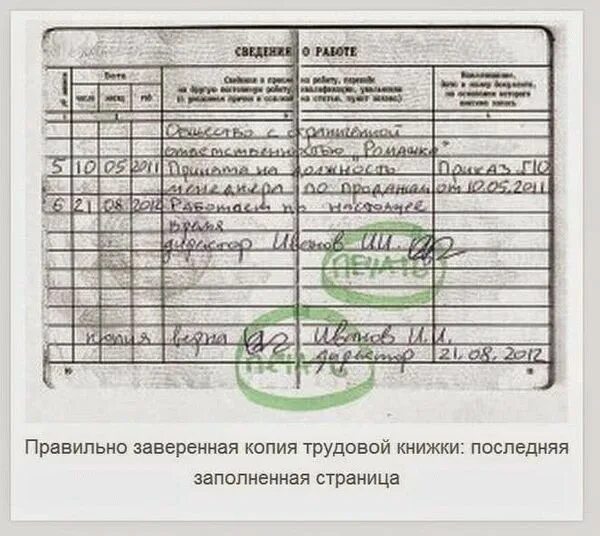 СВЕДЕНИЯ О РАБОТЕ
Дата
число месяц год
Сведения о приеме на работу, переводе
на другую постоянную работу, квалификации, увольнении
(с указанием причин и ссылкой на статью, пункт закона)
Наименование,
дата и номер документа,
на основании которого
внесена запись
Общество с ограниченной
ответственностью "Ромашка"
5 10 05 2011 Принята на должность Приказ 510
менеджера по продажам от 10.05.2011
6 21 08 2012 Работает по настоящее
время
директор Иванов И.И.
ПЕЧАТЬ
копия верна Иванов И.И.
директор 21.08.2012
ПЕЧАТЬ
Правильно заверенная копия трудовой книжки: последняя
заполненная страница